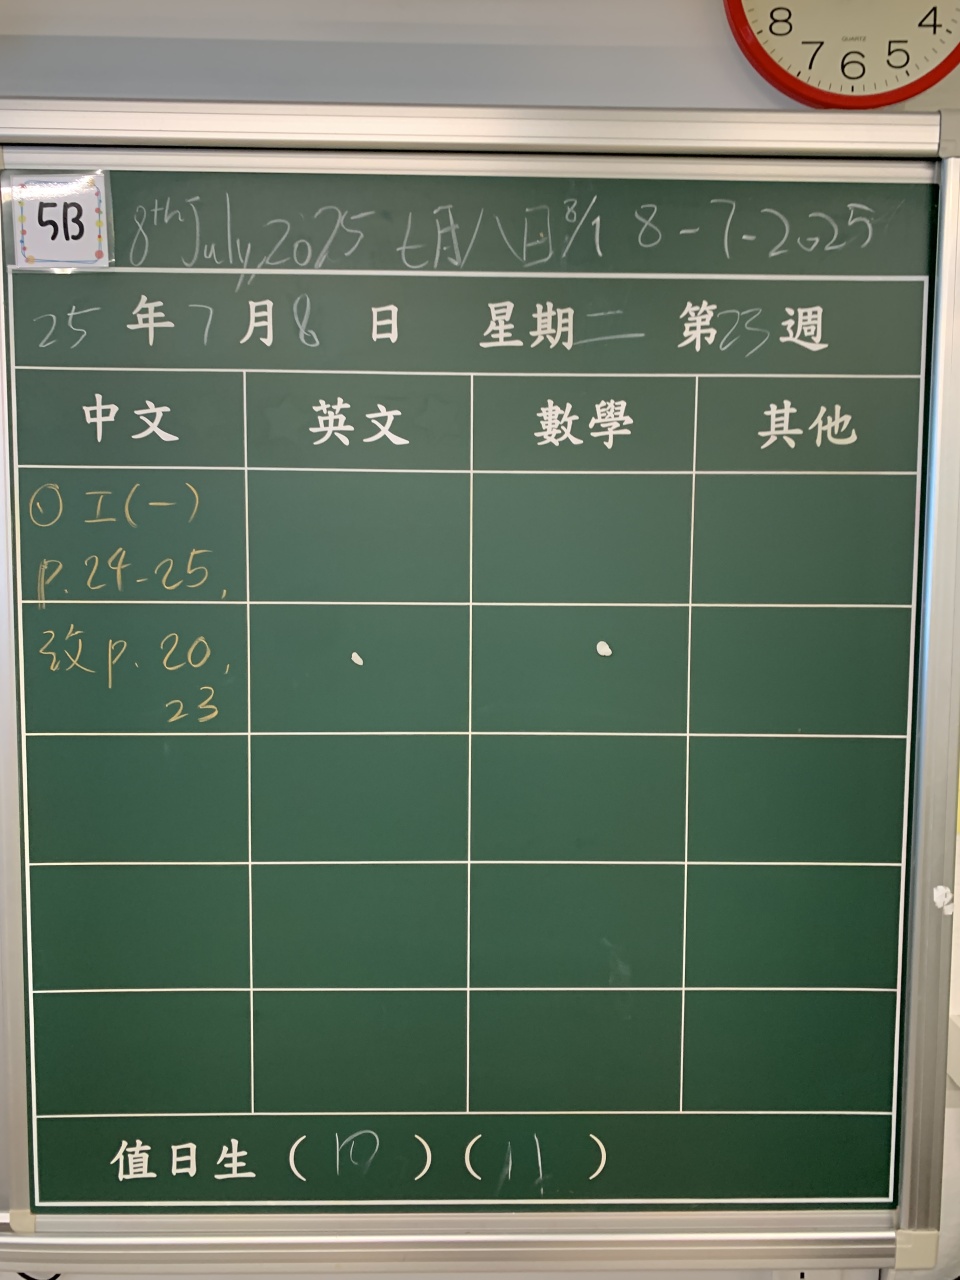 8 4
7 6 5
QUARTZ
5B
8th July, 2025 七月八日 8/7 8-7-2025
25 年 7 月 8 日 星期二 第23週
中文 英文 數學 其他
① 工(一)
p. 24-25,
p. 20,
23
值日生 ( 10 ) ( 11 )